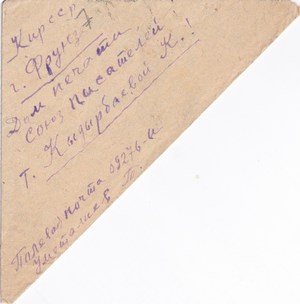 Кирсср
г. Фрунзе
Дом печати
Союз писателей
т. Кыдырбаевой К.!
Полевая почта 02276-и
Уметалиев Т.